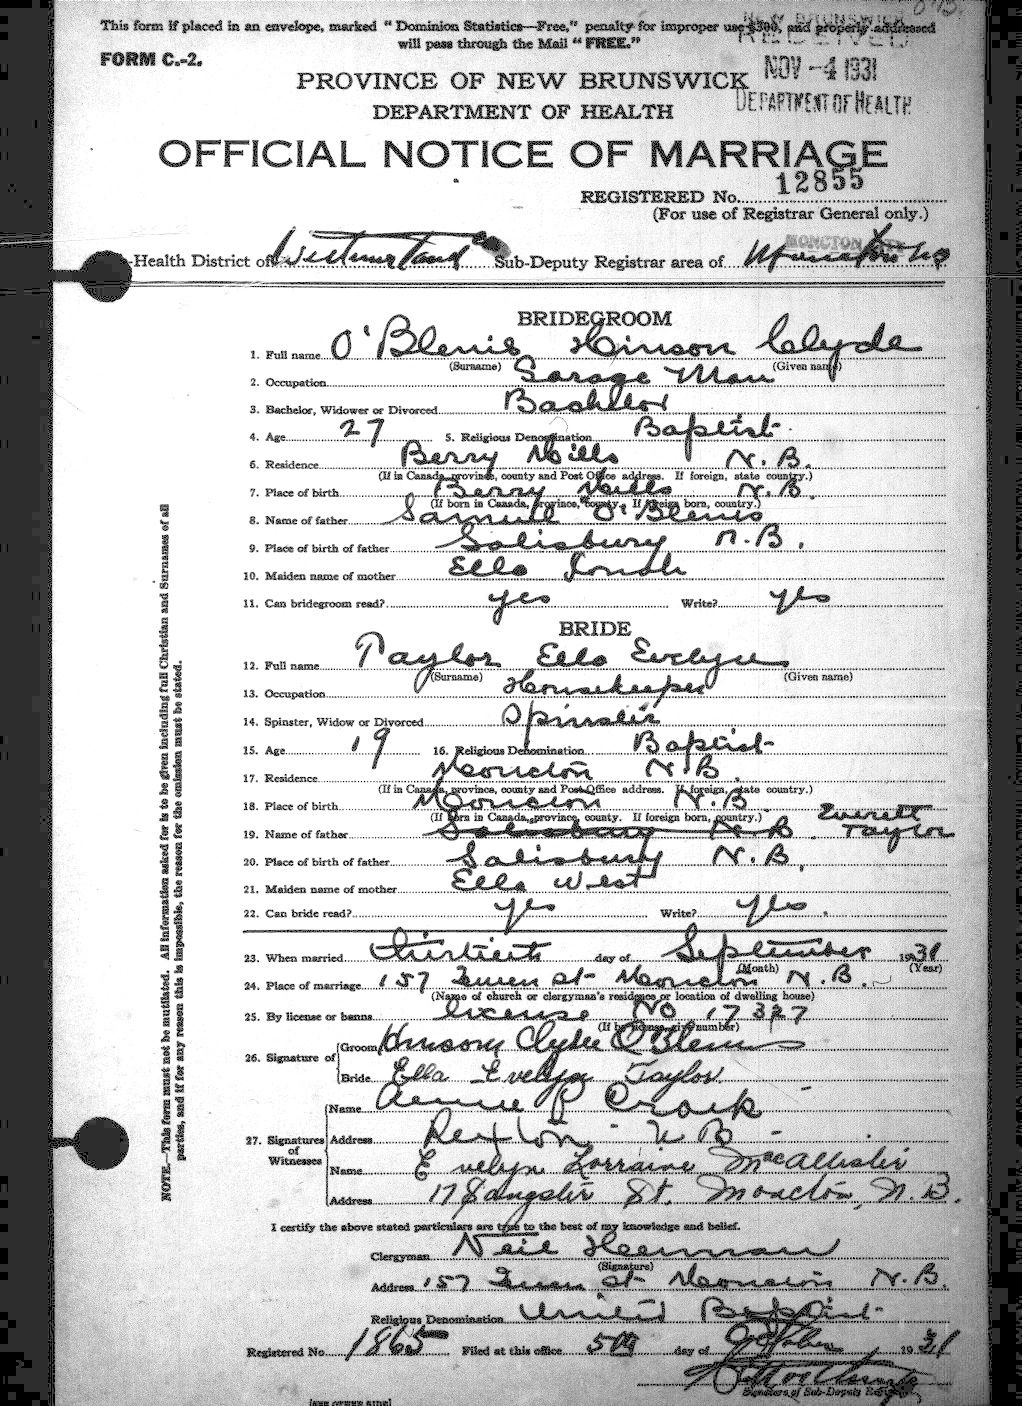 This form if placed in an envelope, marked “ Dominion Statistics—Free,” penalty for improper use $300, and properly addressed
will pass through the Mail “ FREE.”
FORM C.-2.
RECEIVED
NOV -4 1931
DEPARTMENT OF HEALTH
PROVINCE OF NEW BRUNSWICK
DEPARTMENT OF HEALTH
OFFICIAL NOTICE OF MARRIAGE
REGISTERED No. 12855
(For use of Registrar General only.)
MONCTON CITY
-Health District of Westmorland Co Sub-Deputy Registrar area of Moncton
BRIDEGROOM
1. Full name O'Blenis Hinson Clyde
(Surname) (Given name)
2. Occupation Garage Man
3. Bachelor, Widower or Divorced Bachelor
4. Age 27 5. Religious Denomination Baptist
6. Residence Berry Mills N.B.
(If in Canada, province, county and Post Office address. If foreign, state country.)
7. Place of birth Berry Mills N.B.
(If born in Canada, province, county. If foreign born, country.)
8. Name of father Samuel O'Blenis
9. Place of birth of father Salisbury N.B.
10. Maiden name of mother Ella Jonah
11. Can bridegroom read? yes Write? yes
BRIDE
12. Full name Taylor Ella Evelyn
(Surname) (Given name)
13. Occupation Housekeeper
14. Spinster, Widow or Divorced Spinster
15. Age 19 16. Religious Denomination Baptist
17. Residence Moncton N.B.
(If in Canada, province, county and Post Office address. If foreign, state country.)
18. Place of birth Moncton N.B.
(If born in Canada, province, county. If foreign born, country.)
19. Name of father Salisbury N.B. Everett Taylor
20. Place of birth of father Salisbury N.B.
21. Maiden name of mother Ella West
22. Can bride read? yes Write? yes.
23. When married thirtieth day of September 1931
(Month) (Year)
24. Place of marriage 157 Queen St Moncton N.B.
(Name of church or clergyman's residence or location of dwelling house)
25. By license or banns license No 17327
(If by license, give number)
26. Signature of Groom Hinson Clyde O'Blenis
Bride Ella Evelyn Taylor
27. Signatures of Witnesses
Name P Crook
Address Rexton N B
Name Evelyn Lorraine MacAllister
Address 17 Sangster St. Moncton, N.B.
I certify the above stated particulars are true to the best of my knowledge and belief.
Clergyman Neil Herman
(Signature)
Address 157 Queen St Moncton N.B.
Religious Denomination United Baptist
Registered No 1865 Filed at this office 5th day of October 1931
Signature of Sub-Deputy Registrar
NOTE.—This form must not be mutilated. All information asked for is to be given including full Christian and Surnames of all
parties, and if for any reason this is impossible, the reason for the omission must be stated.